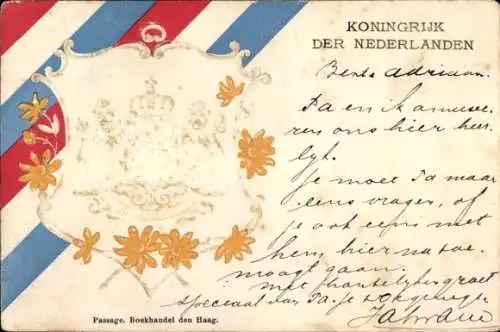 KONINGRIJK
DER NEDERLANDEN
Beste Adriaan.
Pa en ik amusee
ren ons hier heer
lijk.
Je moet Pa maar
eens vragen, of
je ook eens met
hem hier na toe
moogt gaan.
met hartelijke groet
speciaal van Pa. je
Passage. Boekhandel den Haag.